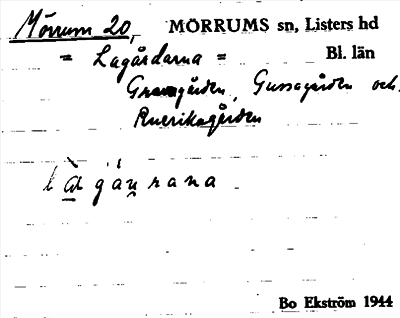 Mörrum 20, MÖRRUMS sn, Listers hd
= Lagårdarna = Bl. län
Gramgården, Gussagården och
Ruerikagården
Bo Ekström 1944